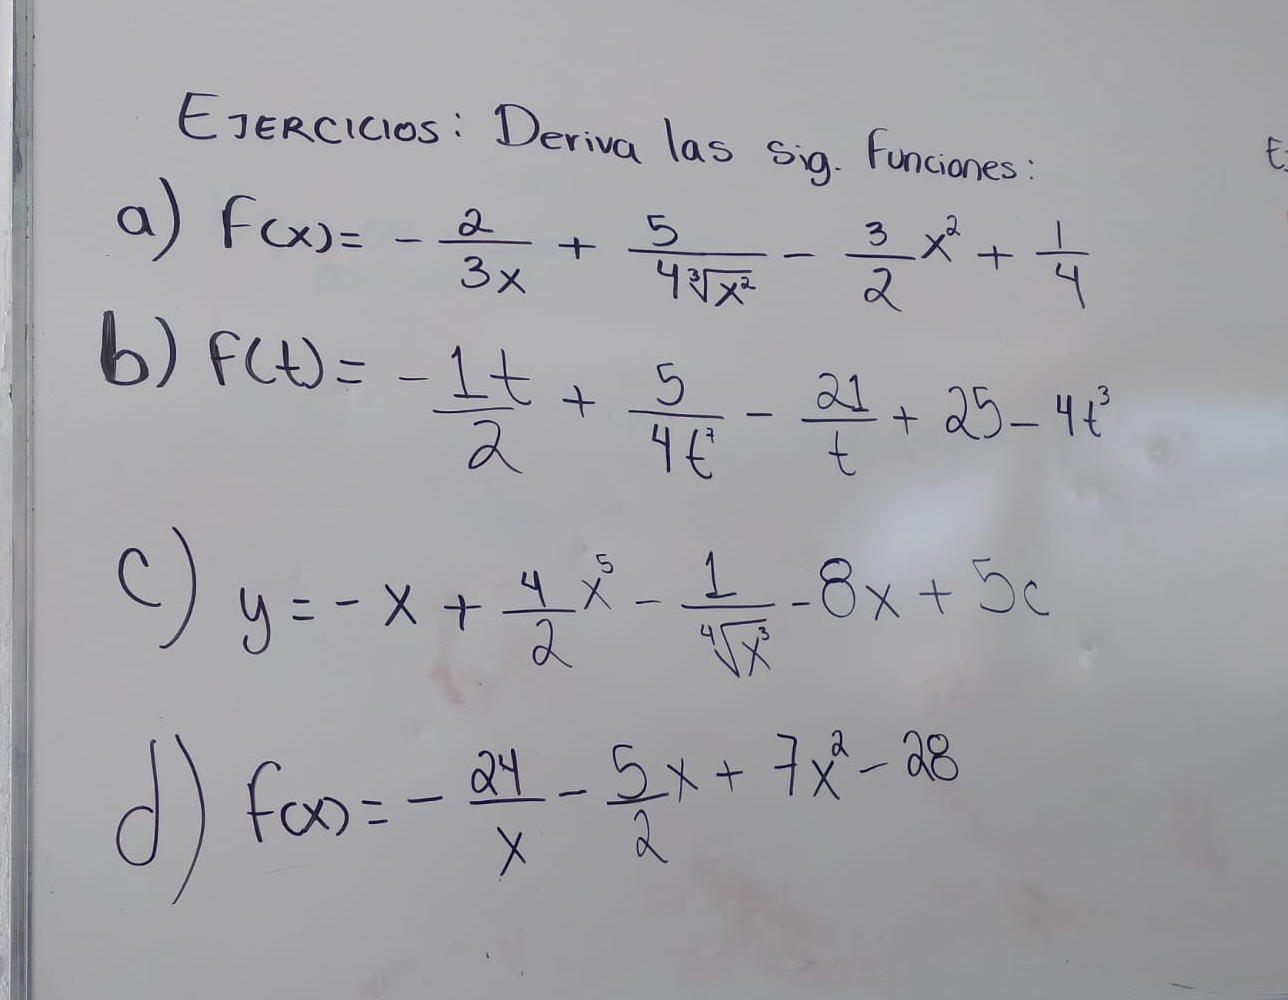 EJERCICIOS: Deriva las sig. funciones:
a) f(x)= - 2/(3x) + 5/(4∛x²) - 3/2 x² + 1/4
b) f(t)= - 1t/2 + 5/(4t⁷) - 21/t + 25 - 4t³
c) y = - x + 4/2 x⁵ - 1/∜x³ - 8x + 5c
d) f(x) = - 24/x - 5/2 x + 7x² - 28